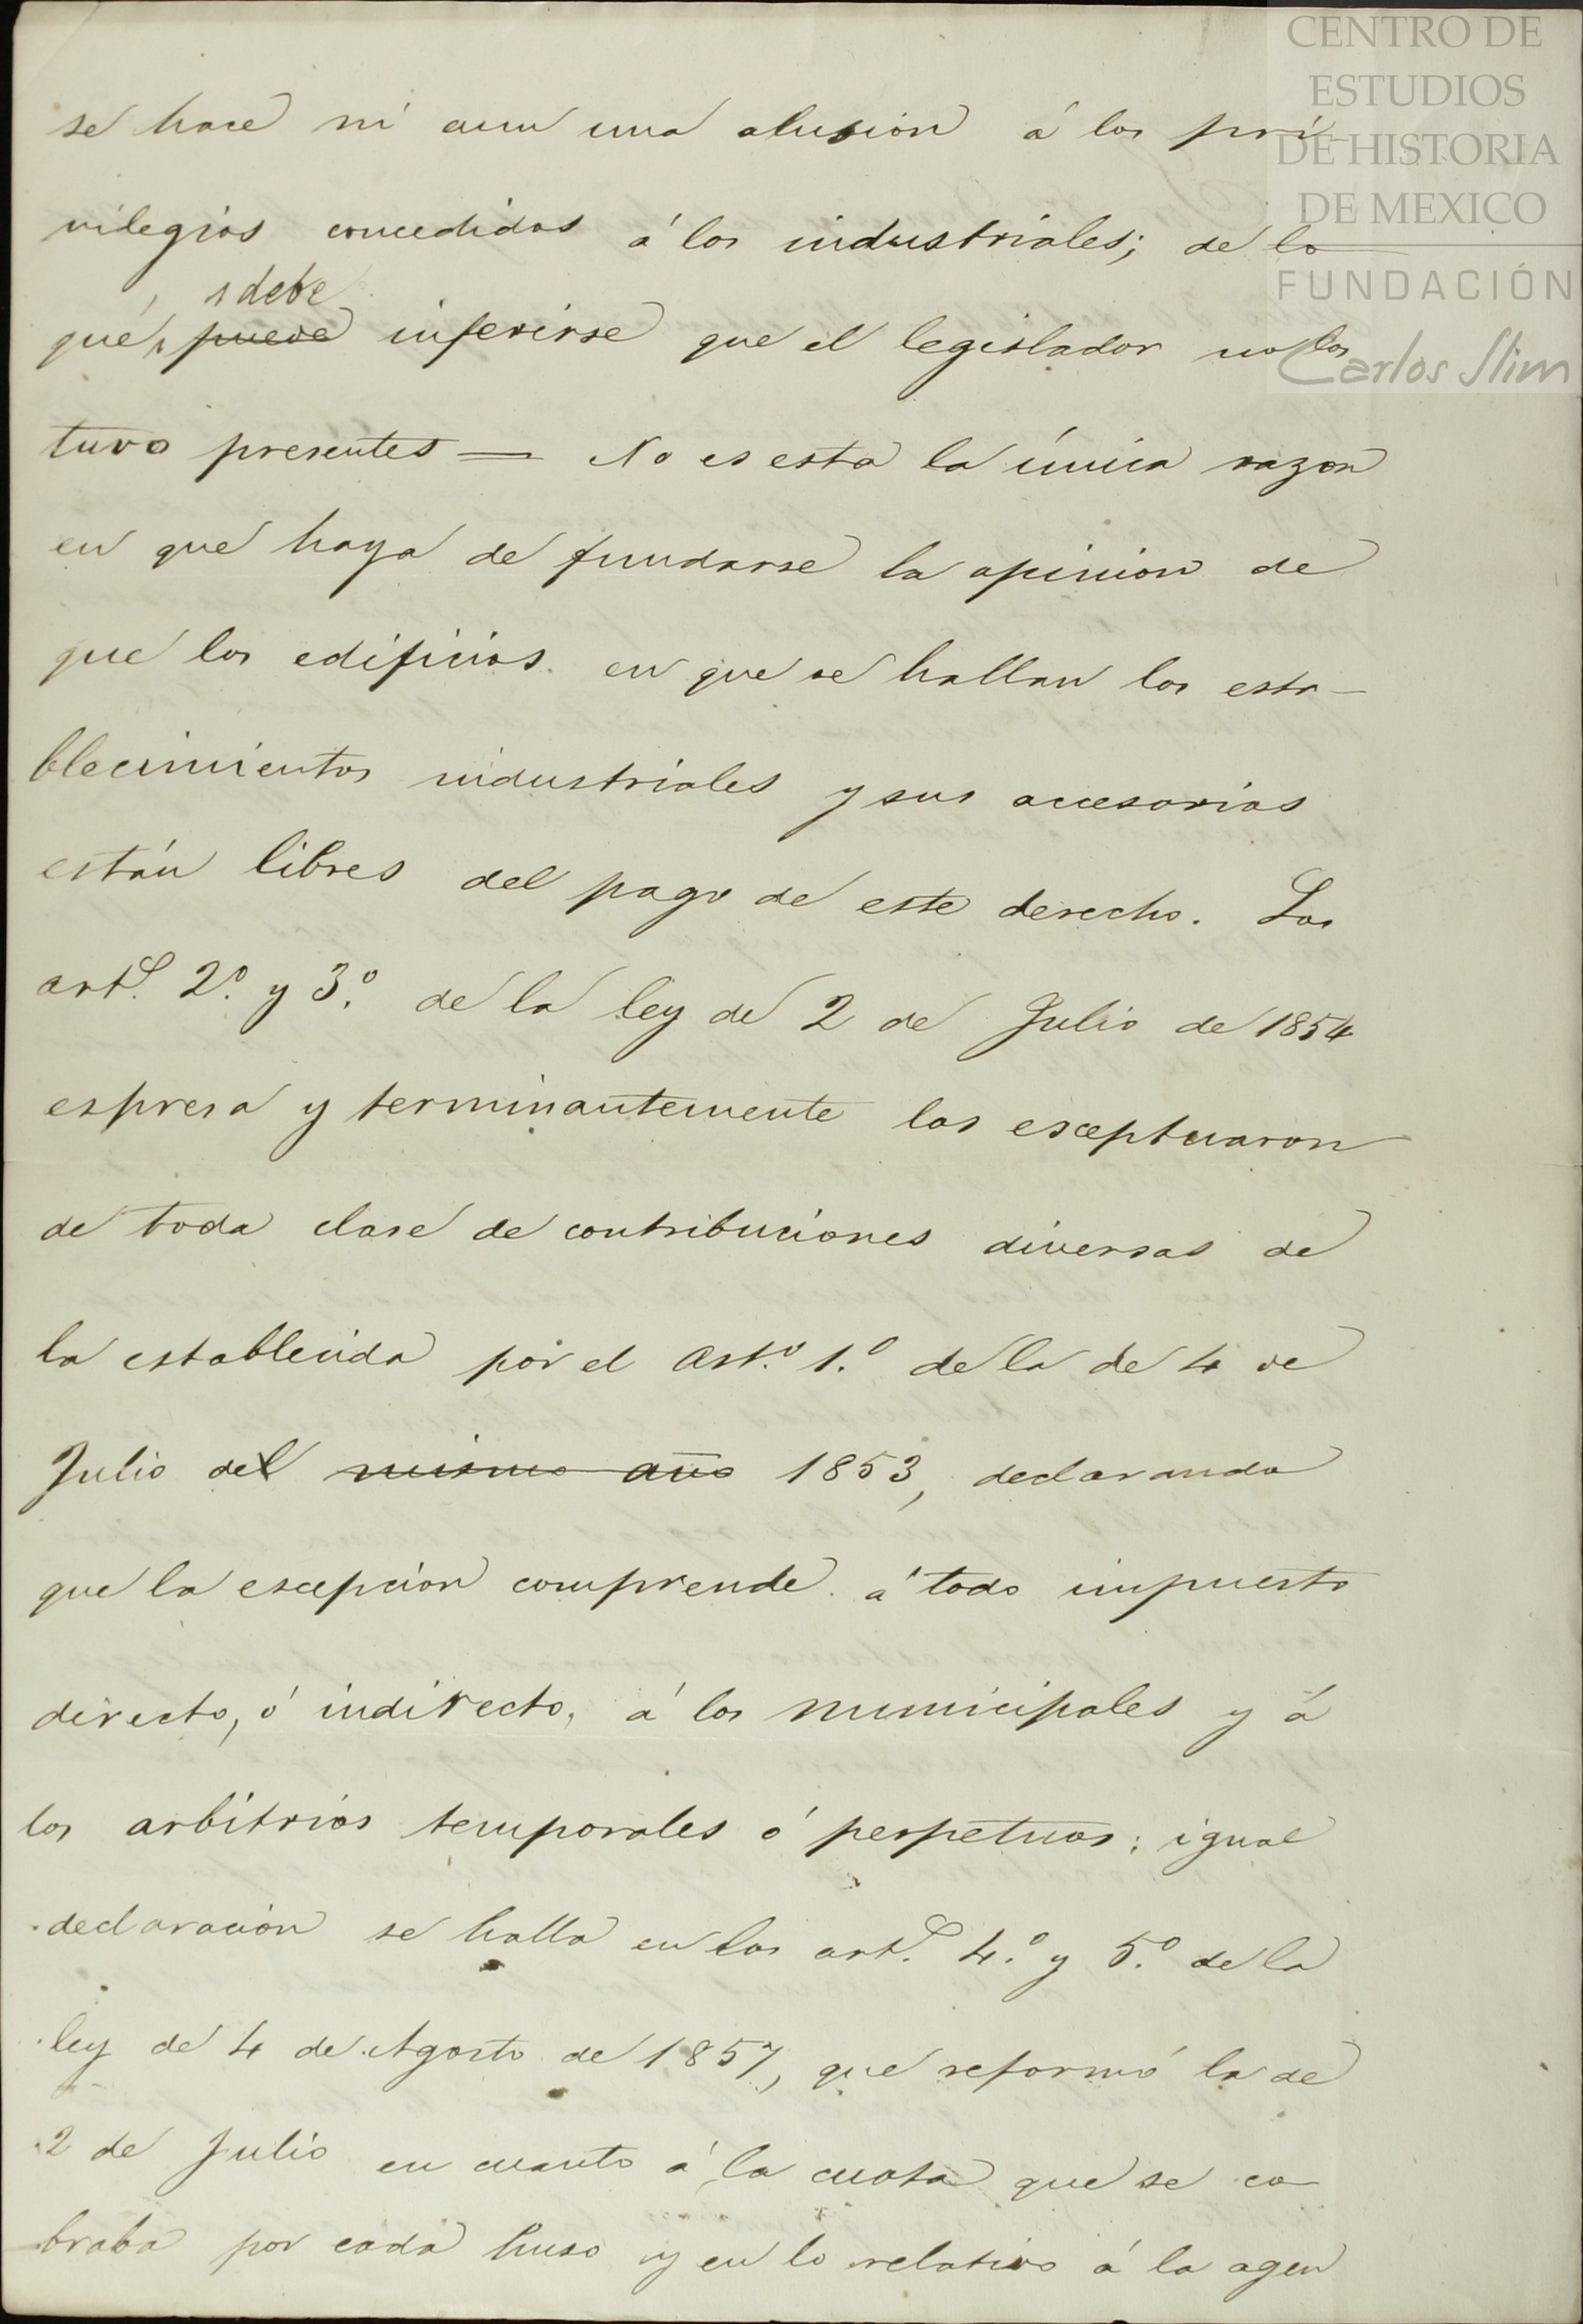 CENTRO DE
ESTUDIOS
DE HISTORIA
DE MEXICO
FUNDACIÓN
Carlos Slim
se hace ni aun una alusion á los pri-
vilegios concedidos á los industriales; de lo
debe
que, puede inferirse que el legislador no los
tuvo presentes = No es esta la única razon
en que haya de fundarse la opinion de
que los edificios en que se hallan los esta-
blecimientos industriales y sus accesorios
están libres del pago de este derecho. Los
artS. 2º. y 3º. de la ley de 2 de Julio de 1854
espresa y terminantemente los esceptuaron
de toda clase de contribuciones diversas de
la establecida por el Artº. 1º. de la de 4 de
Julio del mismo año 1853, declarando
que la escepcion comprende á todo impuesto
directo, ó indirecto, á los municipales y á
los arbitrios temporales ó perpetuos; igual
declaracion se halla en los artS. 4º. y 5º. de la
ley de 4 de Agosto de 1857, que reformó la de
2 de Julio en cuanto á la cuota que se co
braba por cada huso y en lo relativo á la agen